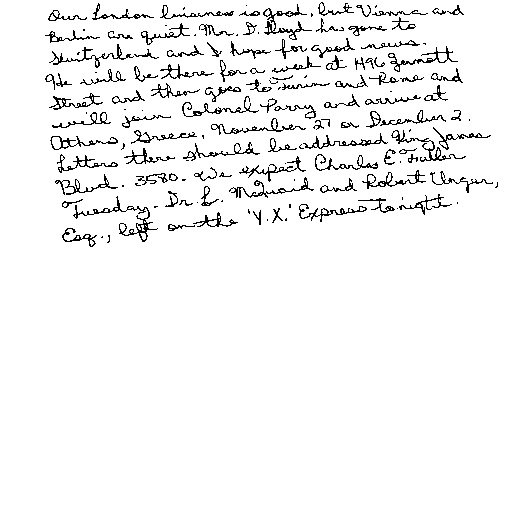 Our London business is good, but Vienna and
Berlin are quiet. Mr. D. Lloyd has gone to
Switzerland and I hope for good news.
He will be there for a week at 1496 Zermott
Street and then goes to Turin and Rome and
will join Colonel Parry and arrive at
Athens, Greece, November 27 or December 2.
Letters there should be addressed King James
Blvd. 3580. We expect Charles E. Fuller
Tuesday. Dr. L. McQuaid and Robert Unger,
Esq., left on the 'Y.X.' Express tonight.